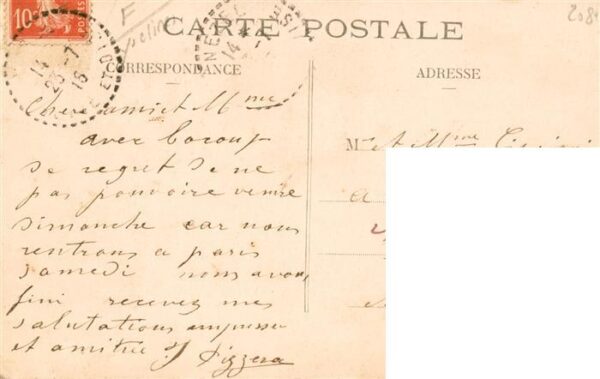 10c
POSTES
CARTE POSTALE
CORRESPONDANCE
ADRESSE
Cher ami et Mme
avec bocoup
de regret de ne
pas pouvoire venire
dimanche car nous
rentrons a paris
samedi nous avons
fini recevez mes
salutations empresse
et amitiée Pizzera
Mr et Mme
a
208